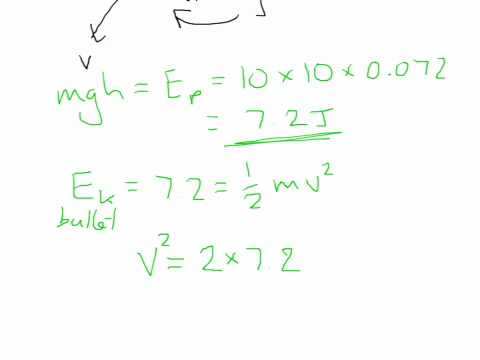 v
mgh = Ep = 10 × 10 × 0.072
= 7.2J
Ek = 7 2 = 1/2 mv²
bullet
v² = 2 × 7.2